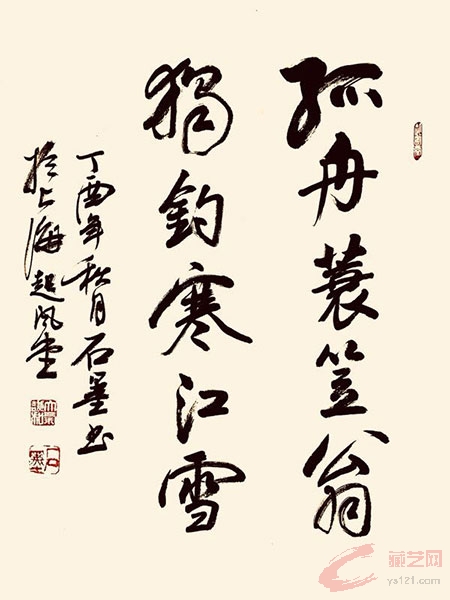 孤舟蓑笠翁
独钓寒江雪
丁酉年秋月石墨书
于上海超风堂
藏艺网
ys121.com